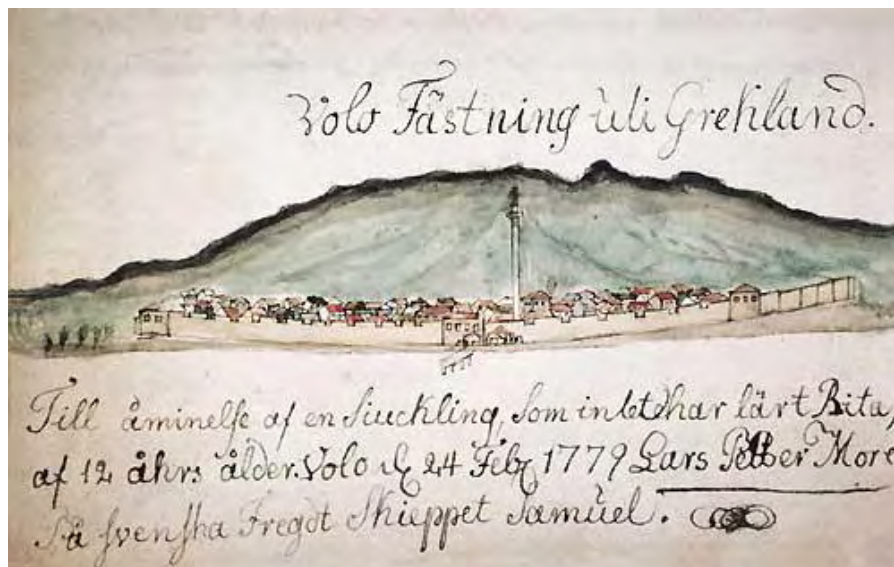 Volo Fästning uti Grekland.
Till åminelse af en Siuckling, Som intet har lärt Rita,
af 12 åhrs ålder. Volo 24 Feb 1779 Lars Petter More
På svenska Fregdt Skieppet Samuel.